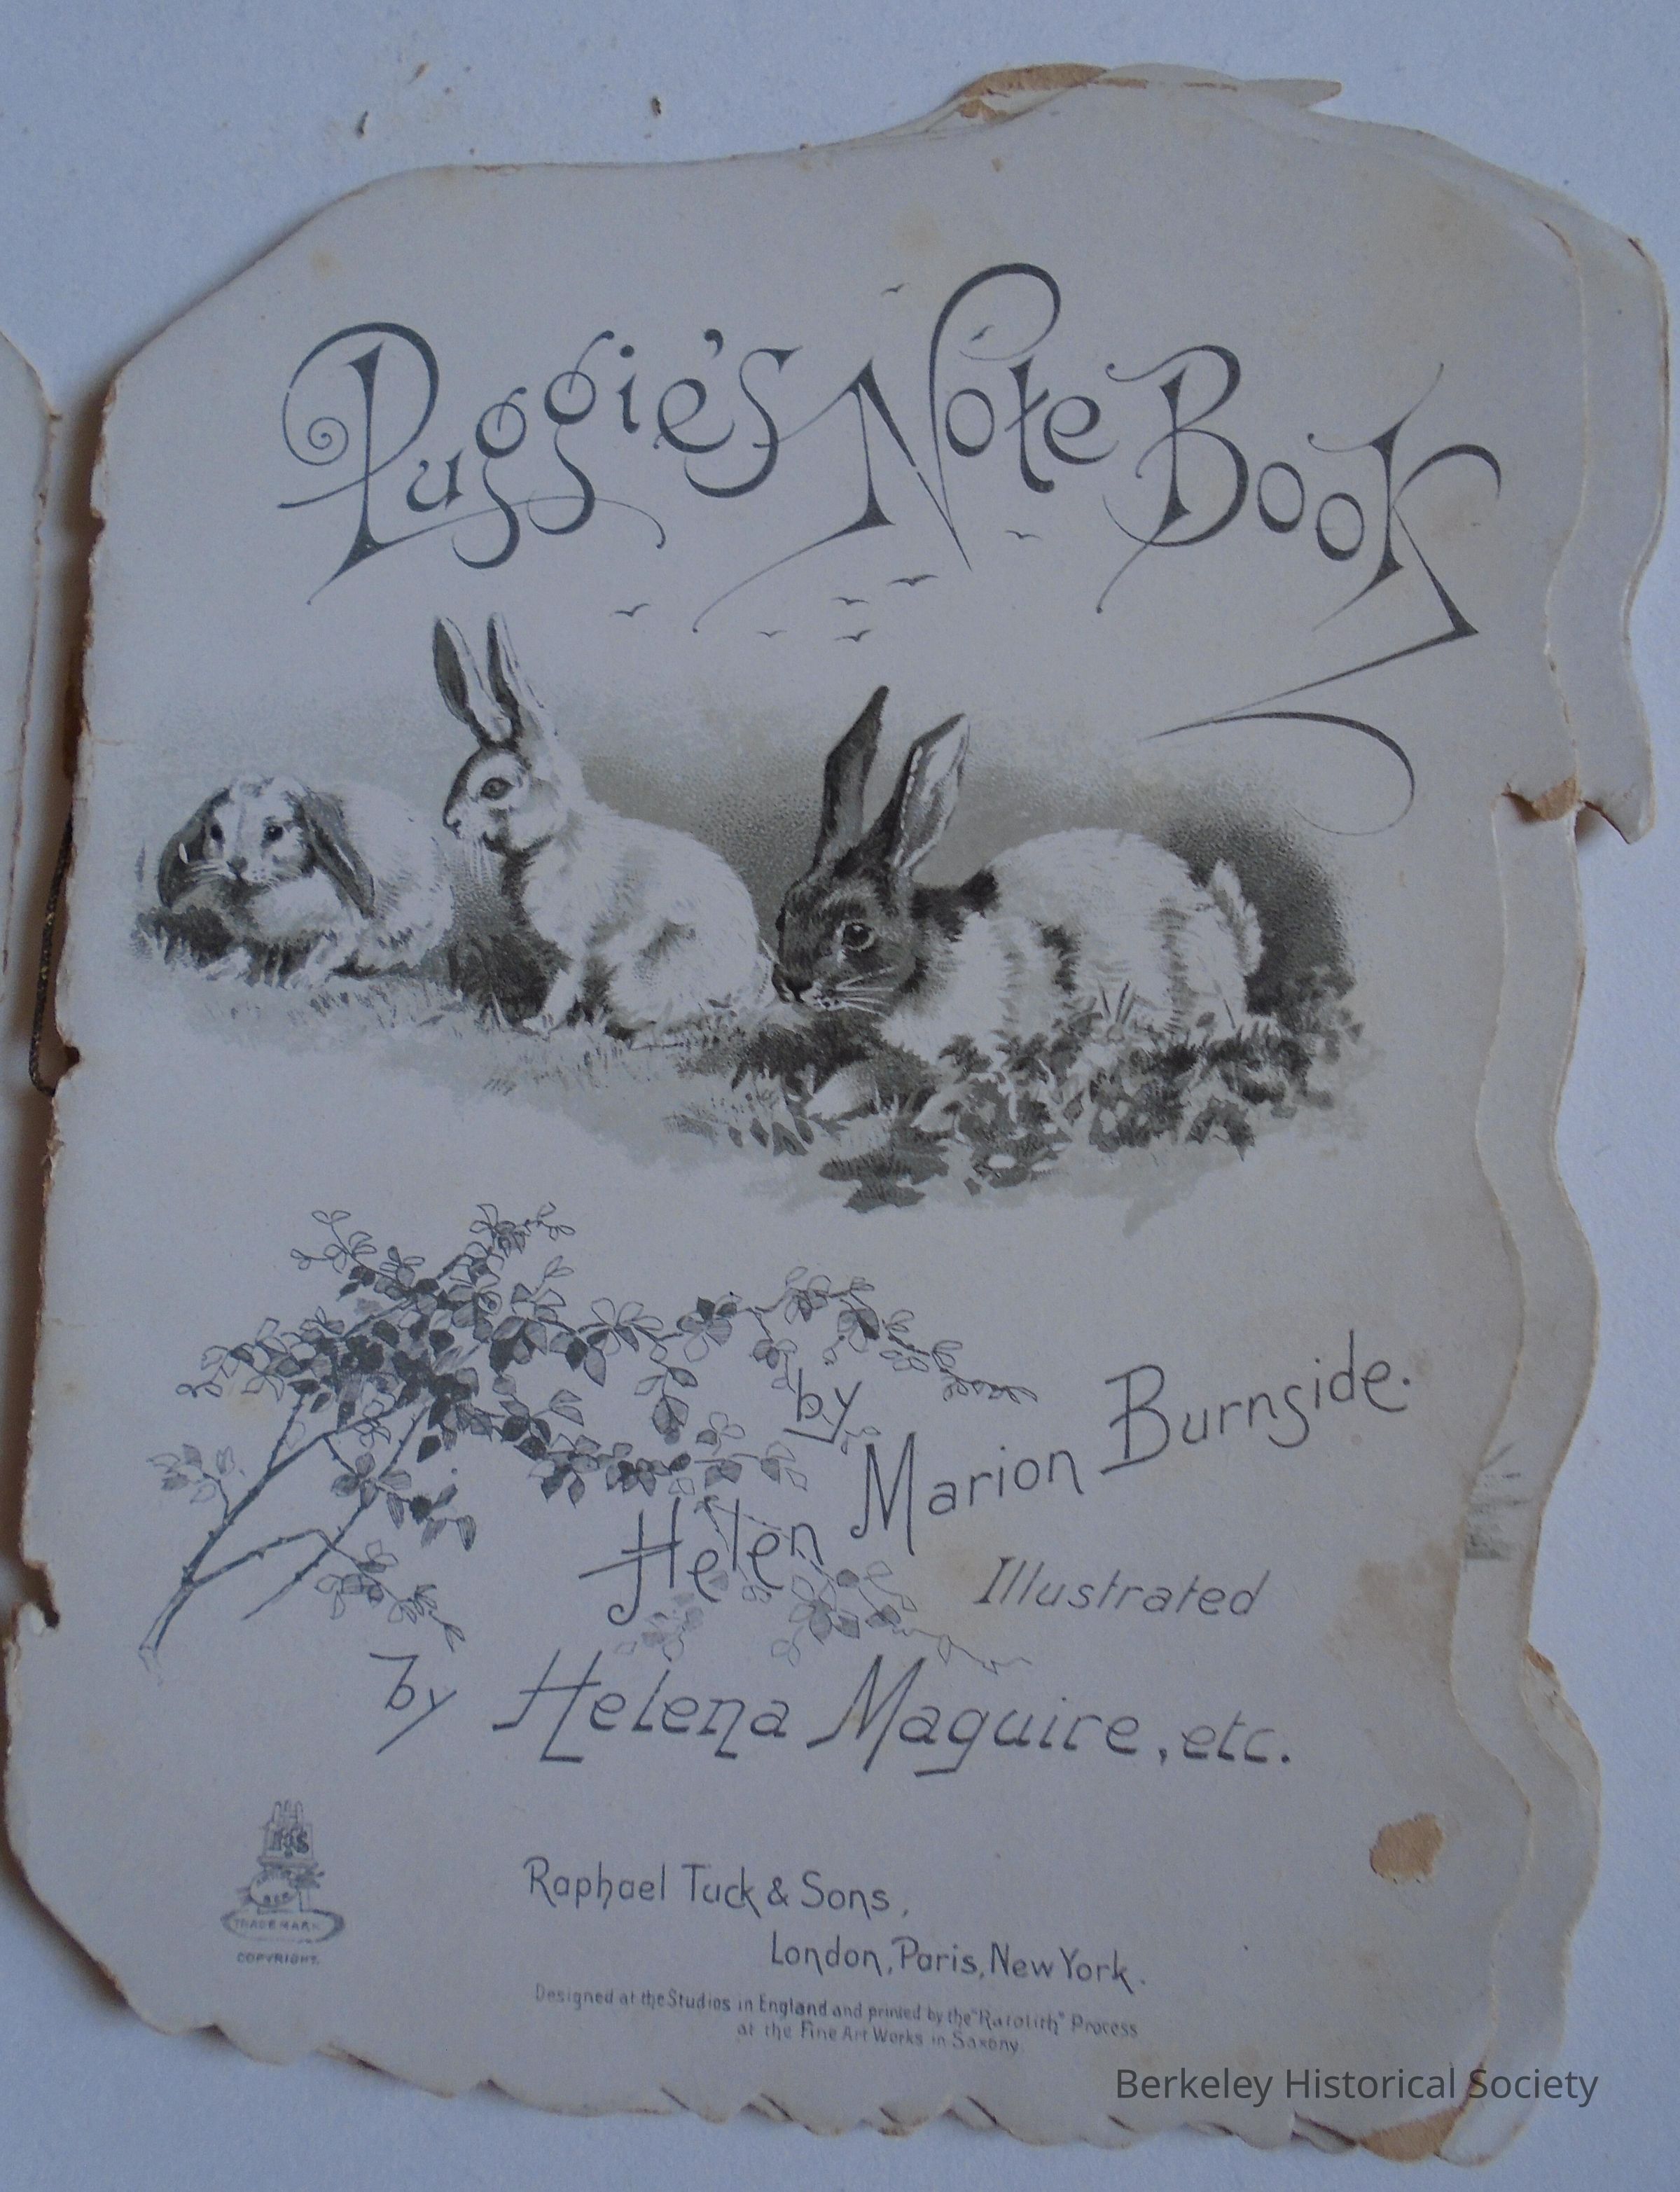 Puggie's Note Book
by
Helen Marion Burnside.
Illustrated
by Helena Maguire, etc.
TRADE MARK
COPYRIGHT.
Raphael Tuck & Sons,
London, Paris, New York.
Designed at the Studios in England and printed by the "Ratolith" Process
at the Fine Art Works in Saxony
Berkeley Historical Society